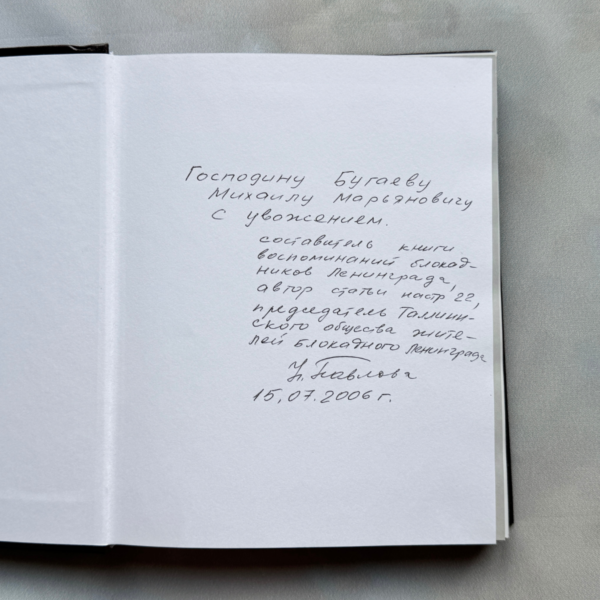 Господину Бугаеву
Михаилу Марьяновичу
с уважением.
составитель книги
воспоминаний блокад-
ников Ленинграда,
автор статьи на стр 22,
председатель Таллин-
ского общества жите-
лей блокадного Ленинграда
Павлова
15.07.2006 г.